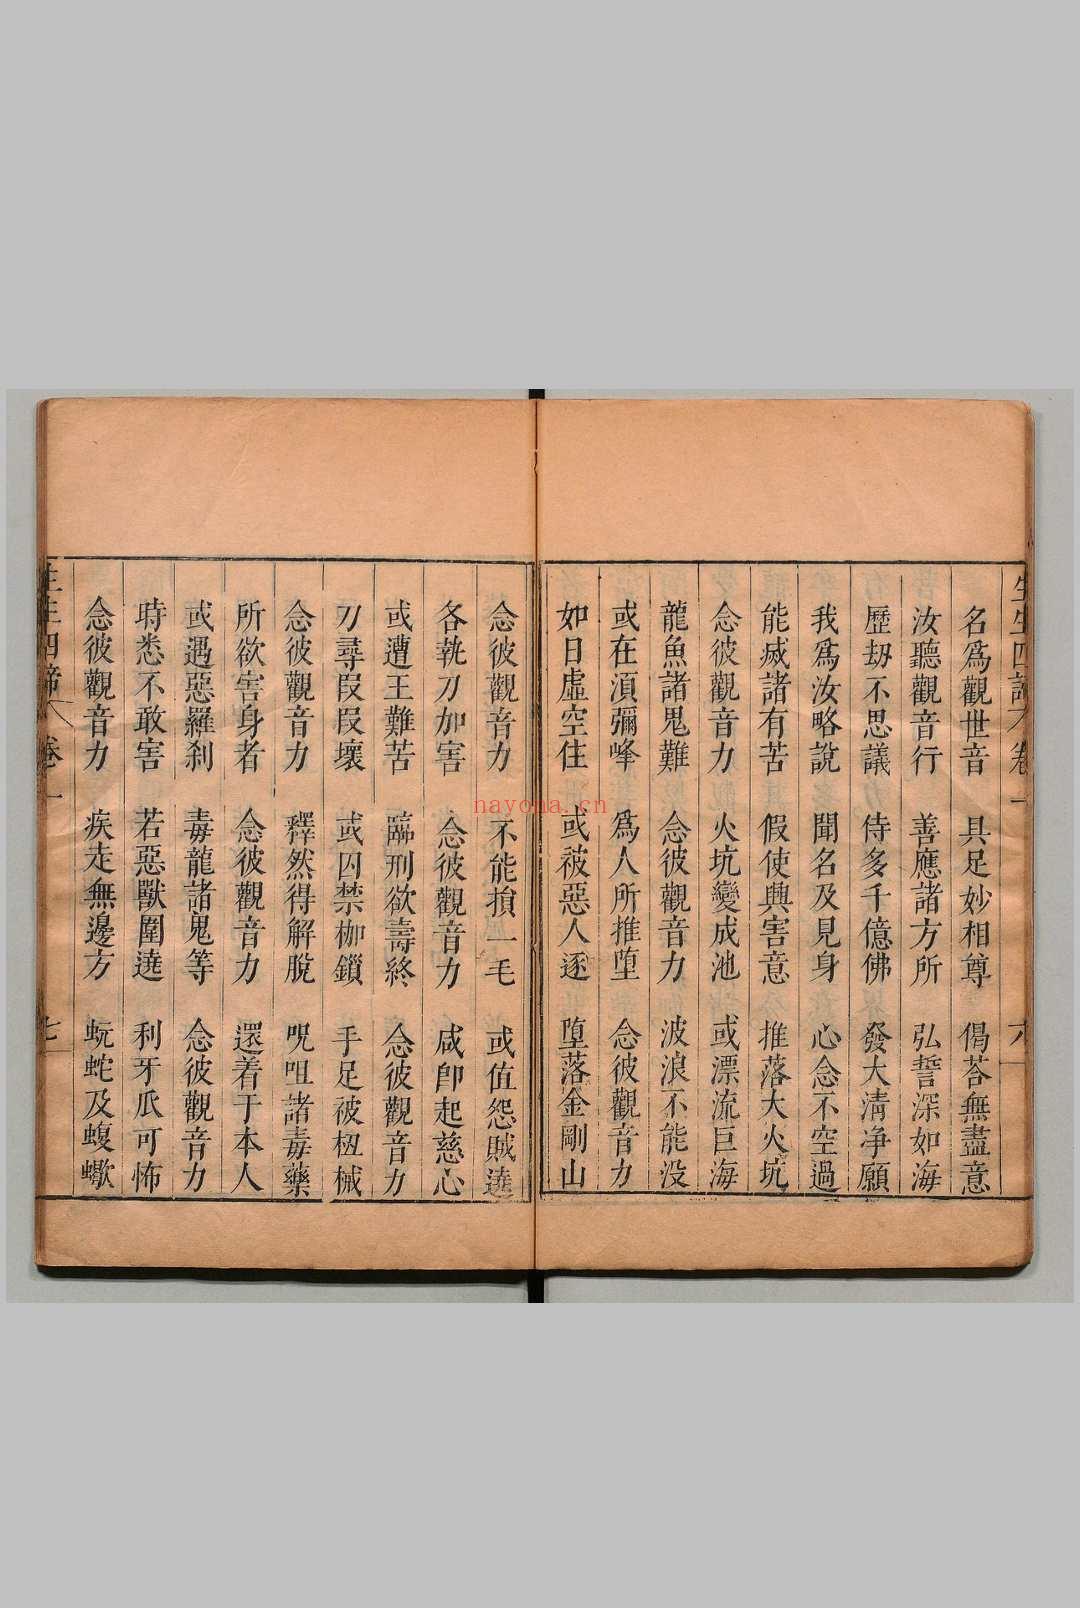 生生四諦 卷一 六
名爲觀世音 具足妙相尊 偈荅無盡意
汝聽觀音行 善應諸方所 弘誓深如海
歷劫不思議 侍多千億佛 發大清净願
我爲汝略說 聞名及見身 心念不空過
能滅諸有苦 假使興害意 推落大火坑
念彼觀音力 火坑變成池 或漂流巨海
龍魚諸鬼難 念彼觀音力 波浪不能没
或在湏彌峰 爲人所推堕 念彼觀音力
如日虛空住 或被惡人逐 堕落金剛山
念彼觀音力 不能損一毛 或值怨賊遶
各執刀加害 念彼觀音力 咸卽起慈心
或遭王難苦 臨刑欲壽終 念彼觀音力
刀尋叚叚壞 或囚禁枷鎖 手足被杻械
念彼觀音力 釋然得解脫 呪咀諸毒藥
所欲害身者 念彼觀音力 還着于本人
或遇惡羅刹 毒龍諸鬼等 念彼觀音力
時悉不敢害 若惡獸圍遶 利牙爪可怖
念彼觀音力 疾走無邊方 蚖蛇及蝮蠍
生生四諦 卷一 七
nayona.cn